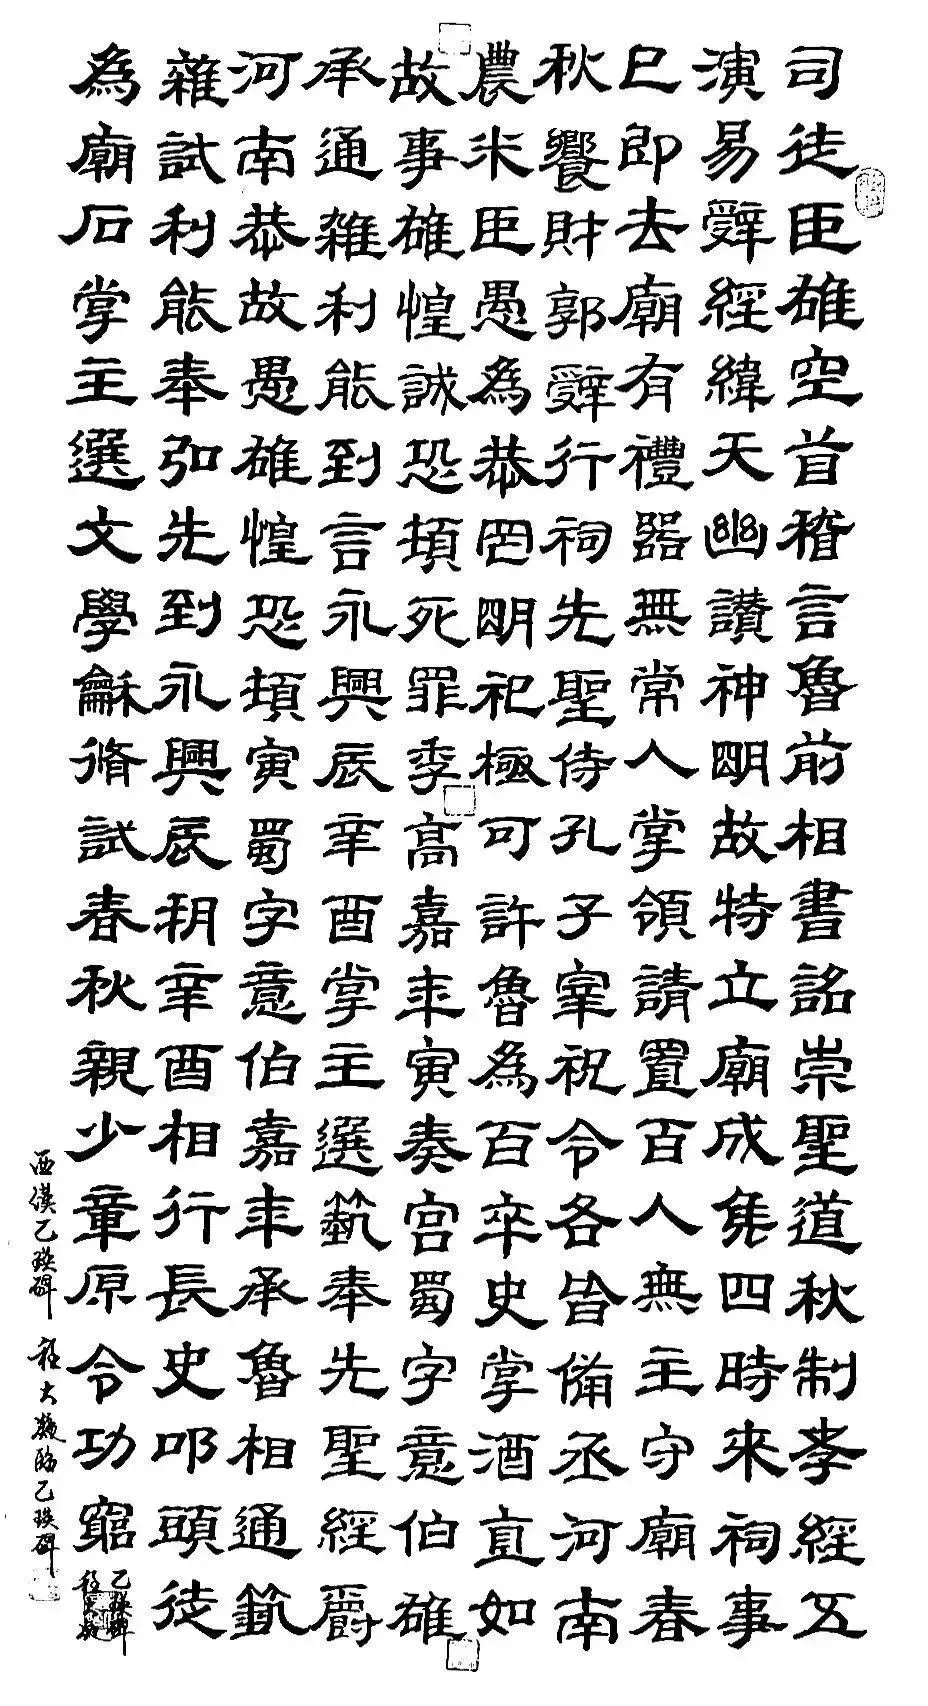 司徒臣雄空首稽言魯前相書詺崇聖道秋制孝經五
演易辭經緯天幽讃神明故特立廟成矦四時來祠事
已即去廟有禮器無常人掌領請置百人無主守廟春
秋饗財郭辭行祠先聖侍孔子宰祝令各皆備丞河南
農米臣愚為恭罔明祀極可許魯為百卒史掌酒直如
故事雄惶誠恐頓死罪季高嘉年寅奏宫蜀字意伯雄
承通雜利能到言永興辰辛酉掌主選孰奉先聖經爵
河南恭故愚雄惶恐頓寅蜀字意伯嘉年承魯相通孰
雜試利能奉弘先到永興辰朔辛酉相行長史叩頭徒
為廟石掌主選文學龢脩試春秋親少章原令功窮
西漢乙瑛碑 程大凝臨乙瑛碑
乙瑛碑